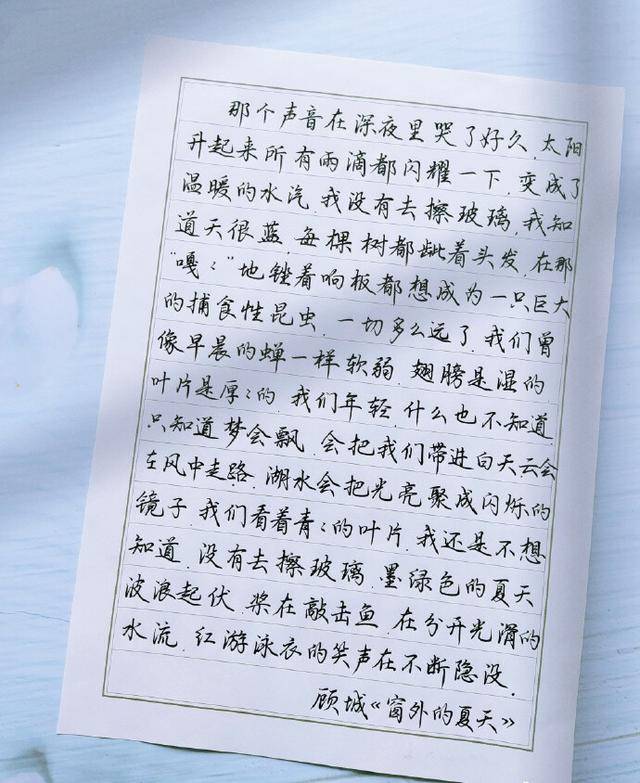 那个声音在深夜里哭了好久.太阳
升起来所有雨滴都闪耀一下.变成了
温暖的水汽.我没有去擦玻璃.我知
道天很蓝.每棵树都龇着头发.在那
“嘎ζ”地锉着响板都想成为一只巨大
的捕食性昆虫.一切多么远了.我们曾
像早晨的蝉一样软弱.翅膀是湿的
叶片是厚ζ的.我们年轻.什么也不知道
只知道梦会飘.会把我们带进白天云会
在风中走路.湖水会把光亮聚成闪烁的
镜子.我们看着青ζ的叶片.我还是不想
知道.没有去擦玻璃.墨绿色的夏天
波浪起伏.桨在敲击鱼.在分开光滑的
水流.红游泳衣的笑声在不断隐没.
顾城《窗外的夏天》